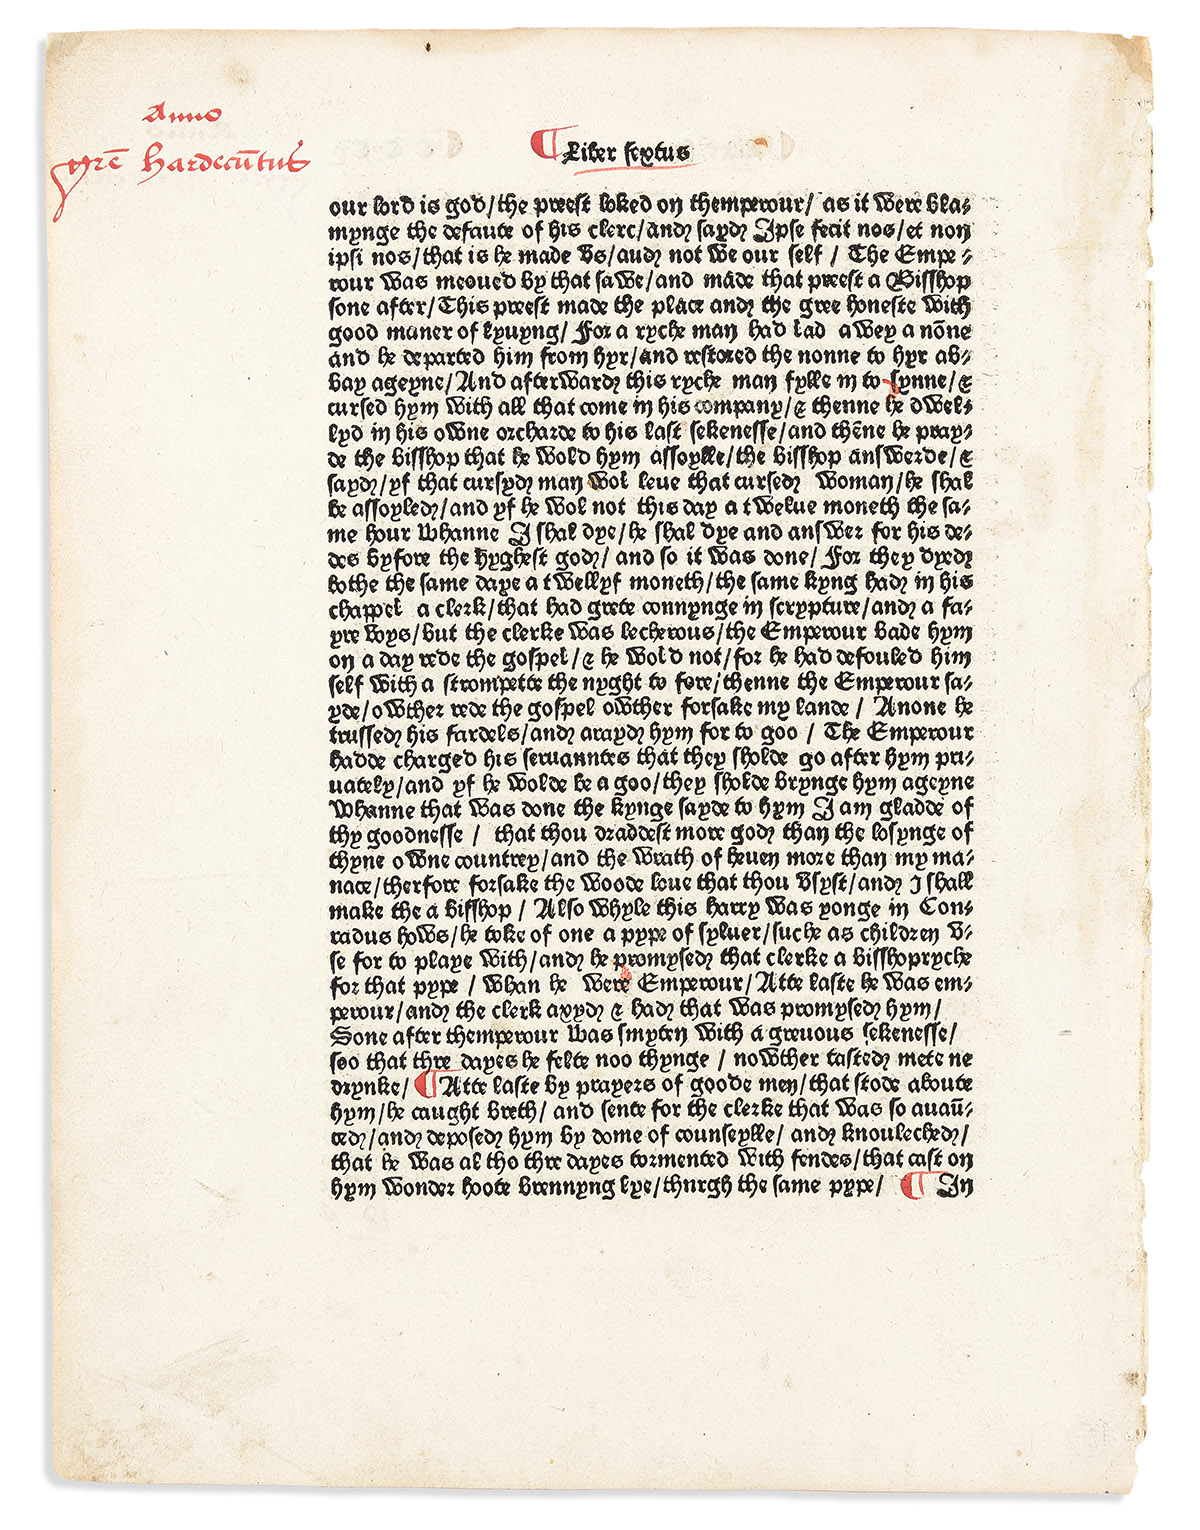 Anno
p̄rē Hardecūtus
¶ Liber sextus
our lord is god/the preest loked on themperour/ as it were bla⸗
mynge the defaute of his clerc/and sayd Ipse fecit nos/et non
ipsi nos/that is he made vs/and not we our self / The Empe⸗
rour was meoued by that sawe/and made that preest a Bisshop
sone after/This preest made the place and the gree honeste with
good maner of lyuyng/ For a ryche man had lad awey a nōne
and he departed him from hyr/and restored the nonne to hyr ab⸗
bay ageyne/And afterward this ryche man fylle in to synne/&
cursed hym with all that come in his company/& thenne he dwel⸗
lyd in his owne orcharde to his last sekenesse/and thēne he pray⸗
de the bisshop that he wold hym assoylle/the bisshop answerde/&
sayd/yf that cursyd man wol leue that cursed woman/he shal
be assoyled/and yf he wol not this day a twelue moneth the sa⸗
me hour whanne I shal dye/he shal dye and answer for his de⸗
des byfore the hyghest god/ and so it was done/ For they dyed
bothe the same daye a twellyf moneth/the same kyng had in his
chappel a clerk/that had grete connynge in scrypture/and a fa⸗
yre voys/but the clerke was lecherous/the Emperour bade hym
on a day rede the gospel/& he wold not/for he had defouled him
self with a strompette the nyght to fore/thenne the Emperour sa⸗
yde/owther rede the gospel owther forsake my lande / Anone he
trussed his fardels/and arayd hym for to goo / The Emperour
hadde charged his seruanntes that they sholde go after hym pri⸗
uately/and yf he wolde be a goo/they sholde brynge hym ageyne
whanne that was done the kynge sayde to hym I am gladde of
thy goodnesse / that thou draddest more god than the losynge of
thyne owne countrey/and the wrath of heuen more than my ma⸗
nace/therfore forsake the woode loue that thou vsyst/and I shall
make the a bisshop / Also whyle this harry was yonge in Con⸗
radus hows/he toke of one a pype of syluer/suche as children v⸗
se for to playe with/and he promysed that clerke a bisshopryche
for that pype / whan he were Emperour/Atte laste he was em⸗
perour/and the clerk axyd & had that was promysed hym/
Sone after themperour was smyten with a greuous sekenesse/
soo that thre dayes he felte noo thynge / nowther tasted mete ne
drynke/ ¶ Atte laste by prayers of goode men/that stode aboute
hym/he caught breth/ and sente for the clerke that was so auaū⸗
ced/and deposed hym by dome of counseylle/ and knouleched/
that he was al tho thre dayes tormented with fendes/that cast on
hym wonder hoote brennyng lye/thurgh the same pype/ ¶ In